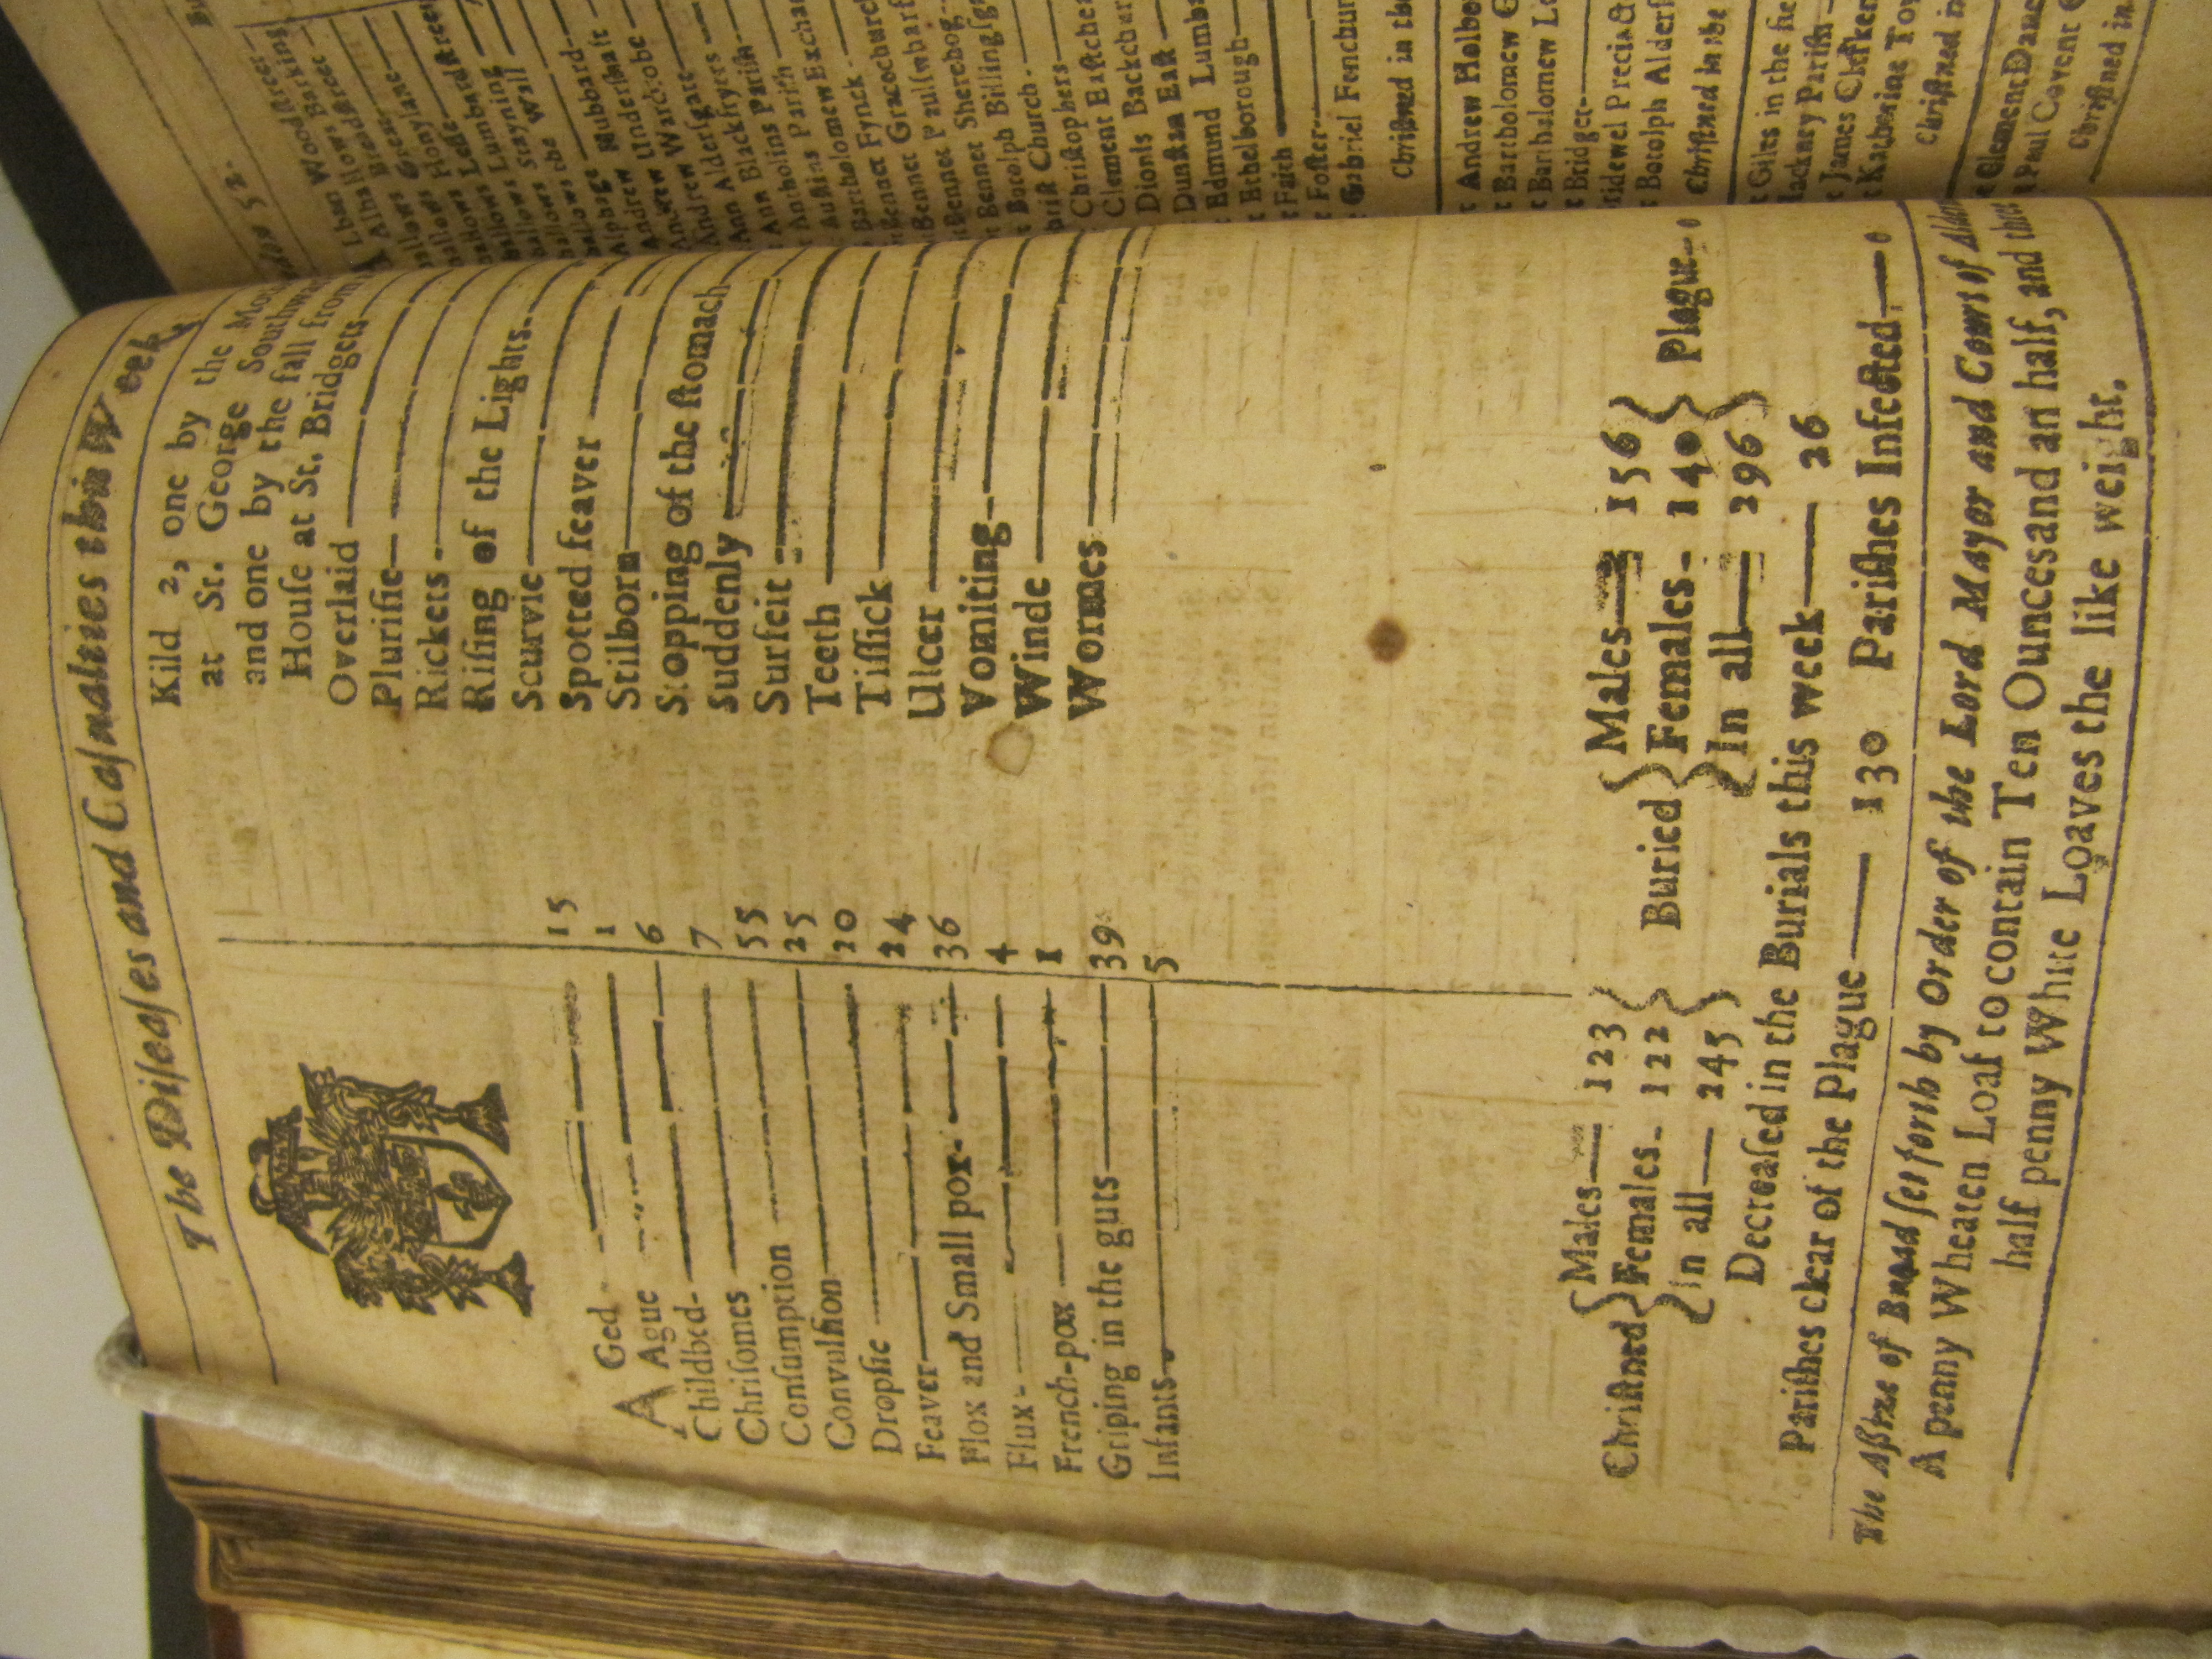 The Diseaſes and Caſualties this Week
AGed 15
Ague 1
Childbed 6
Chriſomes 7
Conſumption 55
Convulſion 25
Dropſie 20
Feaver 24
Flox and Small pox 36
Flux 4
French-pox 1
Griping in the guts 39
Infants 5
Kild 2, one by the
at St. George
and one by the fall from
Houſe at St. Bridgets
Overlaid
Pluriſie
Rickets
Riſing of the Lights
Scurvie
Spotted feaver
Stilborn
Stopping of the ſtomach
Suddenly
Surfeit
Teeth
Tiſſick
Ulcer
Vomiting
Winde
Wormes
Chriſtned { Males 123 Females 122 In all 245 }
Buried { Males 156 Females 140 In all 296 } Plague 0
Decreaſed in the Burials this week 26
Pariſhes clear of the Plague 130 Pariſhes Infected 0
The Aſſize of Bread ſet forth by Order of the Lord Mayor and Court of
A penny Wheaten Loaf to contain Ten Ounces and an half, and three
half penny White Loaves the like weight.
52.
Woodſtreet
Barking
Breadſtreet
Greſe
Honylane
Leadſtreet
Lumbard
Stayning
the Wall
Hubbard
Underſhaft
Andrew Wardrobe
Ann Alderſgate
Ann Blackfryers
Antholins Pariſh
Auſtins Pariſh
Bartholomew Exchan
Bennet Fynck
Bennet Gracechurch
Bennet Paulſwharf
Bennet Sherehog
Botolph Billingſga
Church
Chriſtophers
Clement Eaſtchea
Dionis Backchur
Dunſtan Eaſt
Edmund Lumba
Ethelborough
Faith
Foſter
Gabriel Fenchur
Chriſtned in the
Andrew Holbo
Bartholomew G
Bartholomew Le
Bridget
Bridewel Precinct
Botolph Alderſ
Chriſtned in the
Giles in the fie
Hackney Pariſh
James Clerken
Katherine Tow
Chriſtned in
Clement Dane
Paul Covent G
Chriſtned in